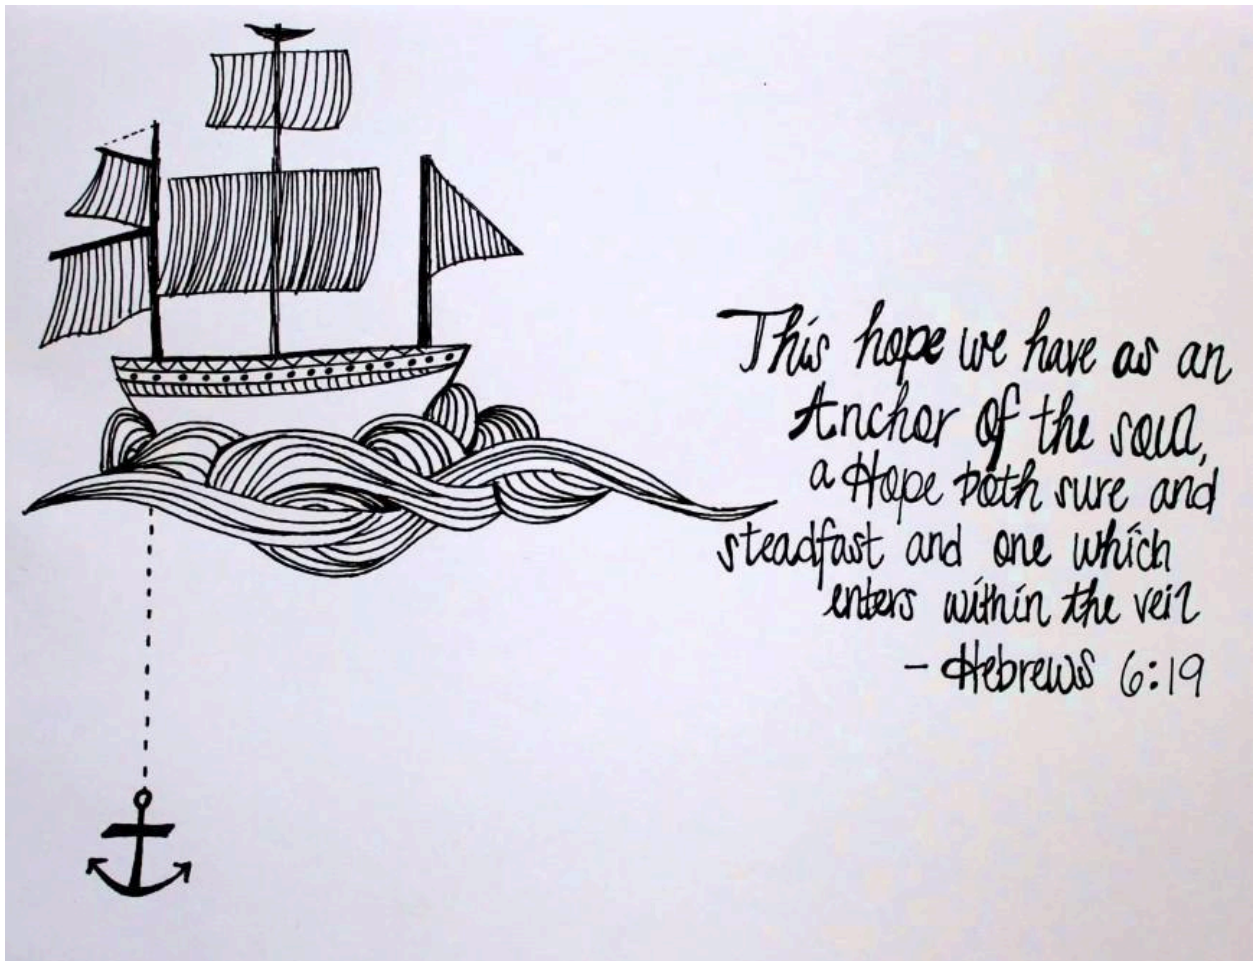 This hope we have as an
Anchor of the soul,
a Hope both sure and
steadfast and one which
enters within the veil
- Hebrews 6:19